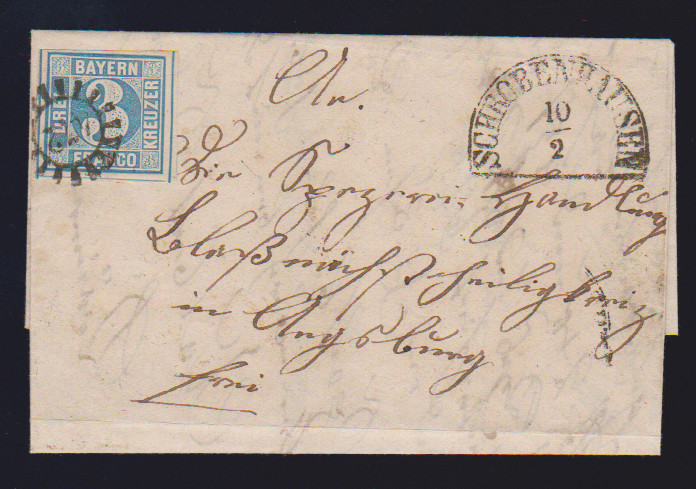 BAYERN
DREI
3
KREUZER
FRANCO
SCHROBENHAUSEN
10
2
An.
die Spezerei Handlung
Blaß nächst heilig kreiz
in Augsburg
frei